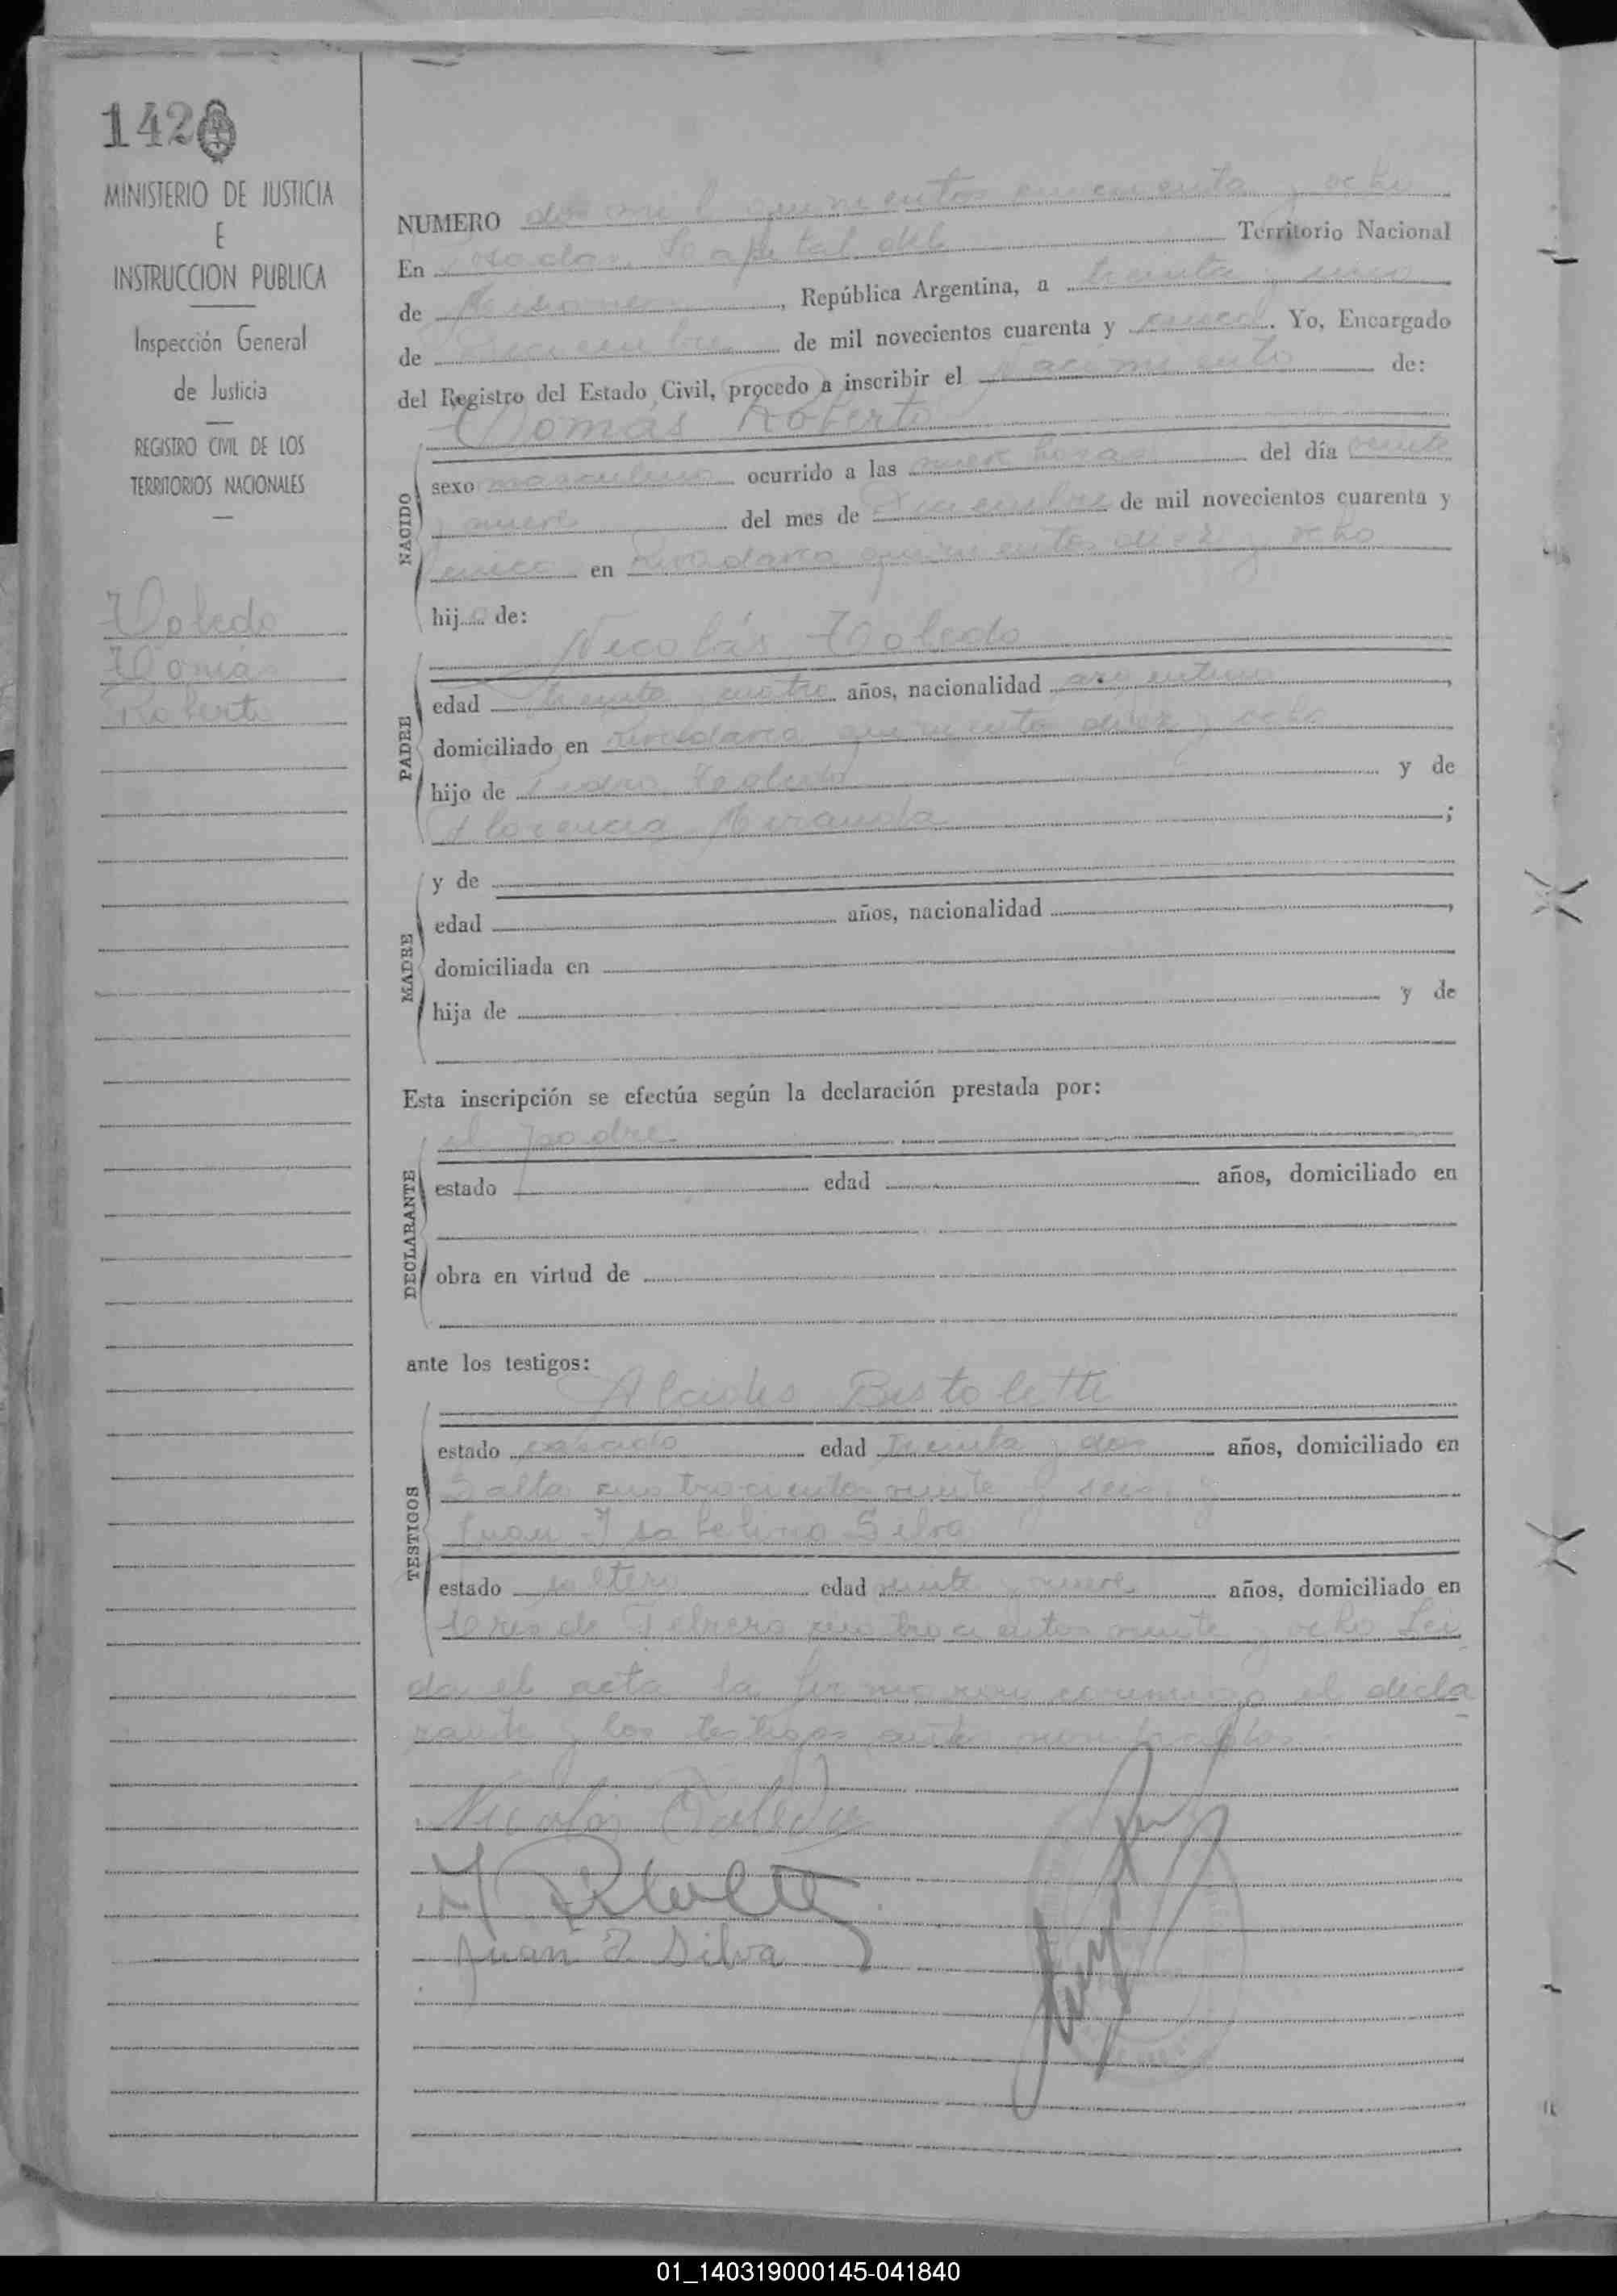 142
MINISTERIO DE JUSTICIA
E
INSTRUCCION PUBLICA
Inspección General
de Justicia
REGISTRO CIVIL DE LOS
TERRITORIOS NACIONALES
Toledo
Tomás
Roberto
NUMERO dos mil quinientos cincuenta y ocho
En Posadas, Capital del Territorio Nacional
de Misiones, República Argentina, a treinta y uno
de Diciembre de mil novecientos cuarenta y cinco. Yo, Encargado
del Registro del Estado Civil, procedo a inscribir el nacimiento de:
Tomás Roberto
NACIDO
sexo masculino ocurrido a las nueve horas del día veinte
y nueve del mes de Diciembre de mil novecientos cuarenta y
cinco en Rivadavia quinientos diez y ocho
hijo de:
Nicolás Toledo
PADRE
edad treinta y cuatro años, nacionalidad argentino,
domiciliado en Rivadavia quinientos diez y ocho
hijo de Pedro Toledo y de
Florencia Miranda;
MADRE
y de
edad años, nacionalidad ,
domiciliada en
hija de y de
Esta inscripción se efectúa según la declaración prestada por:
el padre
DECLARANTE
estado edad años, domiciliado en
obra en virtud de
ante los testigos:
Alcides Bistoletti
TESTIGOS
estado casado edad treinta y dos años, domiciliado en
Salta cuatrocientos veinte y seis y
Juan Isabelino Silva
estado soltero edad veinte y nueve años, domiciliado en
tres de Febrero cuatrocientos veinte y ocho Lei
da el acta la firmaron conmigo el decla
rante y los testigos antes nombrados
Nicolás Toledo
Juan I Silva
01_140319000145-041840